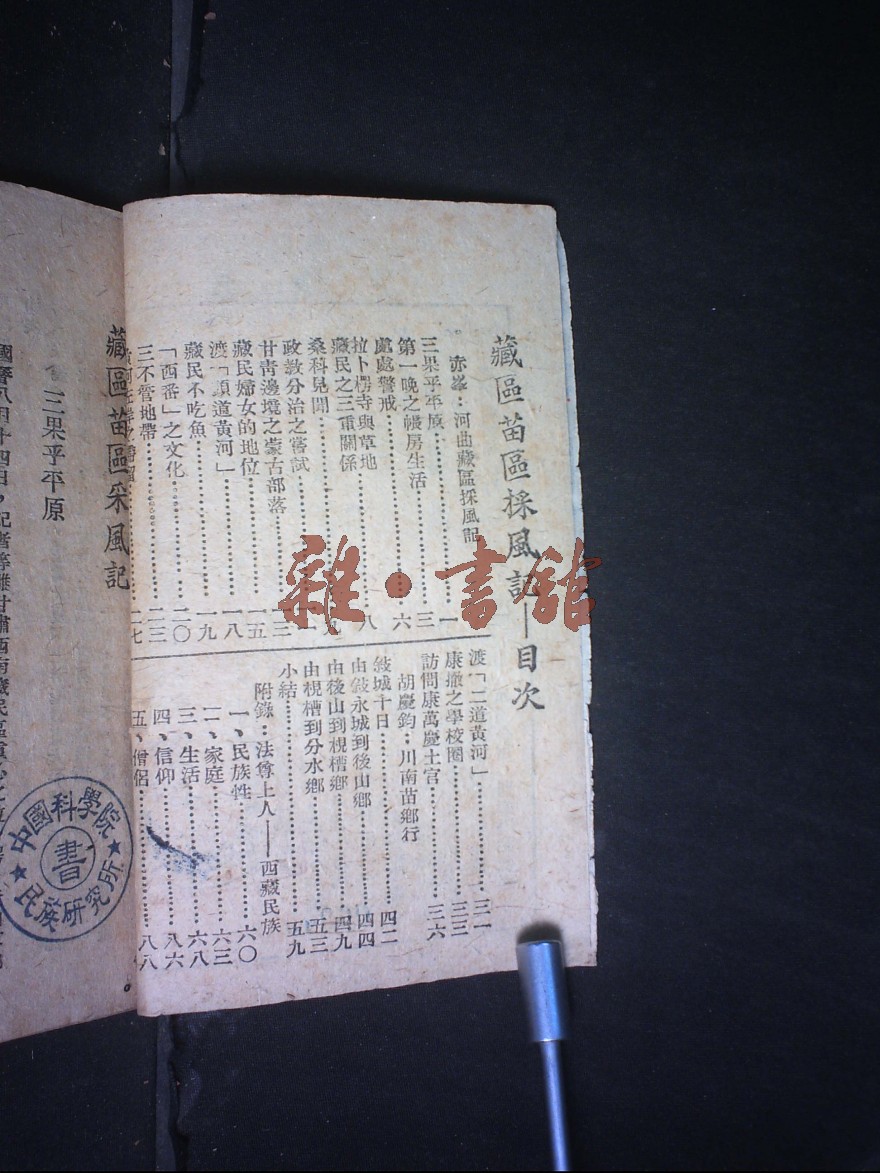 藏區苗區採風記——目次
赤峯:河曲藏區採風記
三果乎平原……一
第一晚之帳房生活……三
處處警戒……六
拉卜楞寺與草地……八
藏民之三重關係……九
桑科見聞……
政教分治之嘗試……一三
甘青邊境之蒙古部落……一五
藏民婦女的地位……一八
渡「頭道黃河」……一九
藏民不吃魚……二〇
「西番」之文化……二三
三不管地帶……二七
渡「二道黃河」……三一
康撒之學校圈……三三
訪問康萬慶土官……三六
胡慶鈞:川南苗鄉行
敍城十日……四二
由敍永城到後山鄉……四四
由後山到梘槽鄉……四九
由梘槽到分水鄉……五三
小結……五九
附錄:法尊上人——西藏民族
一、民族性……六〇
二、家庭……六三
三、生活……六八
四、信仰……八六
五、僧侶……八八
藏區苗區采風記
三果乎平原
中國科學院
民族研究所
書
雜·書館